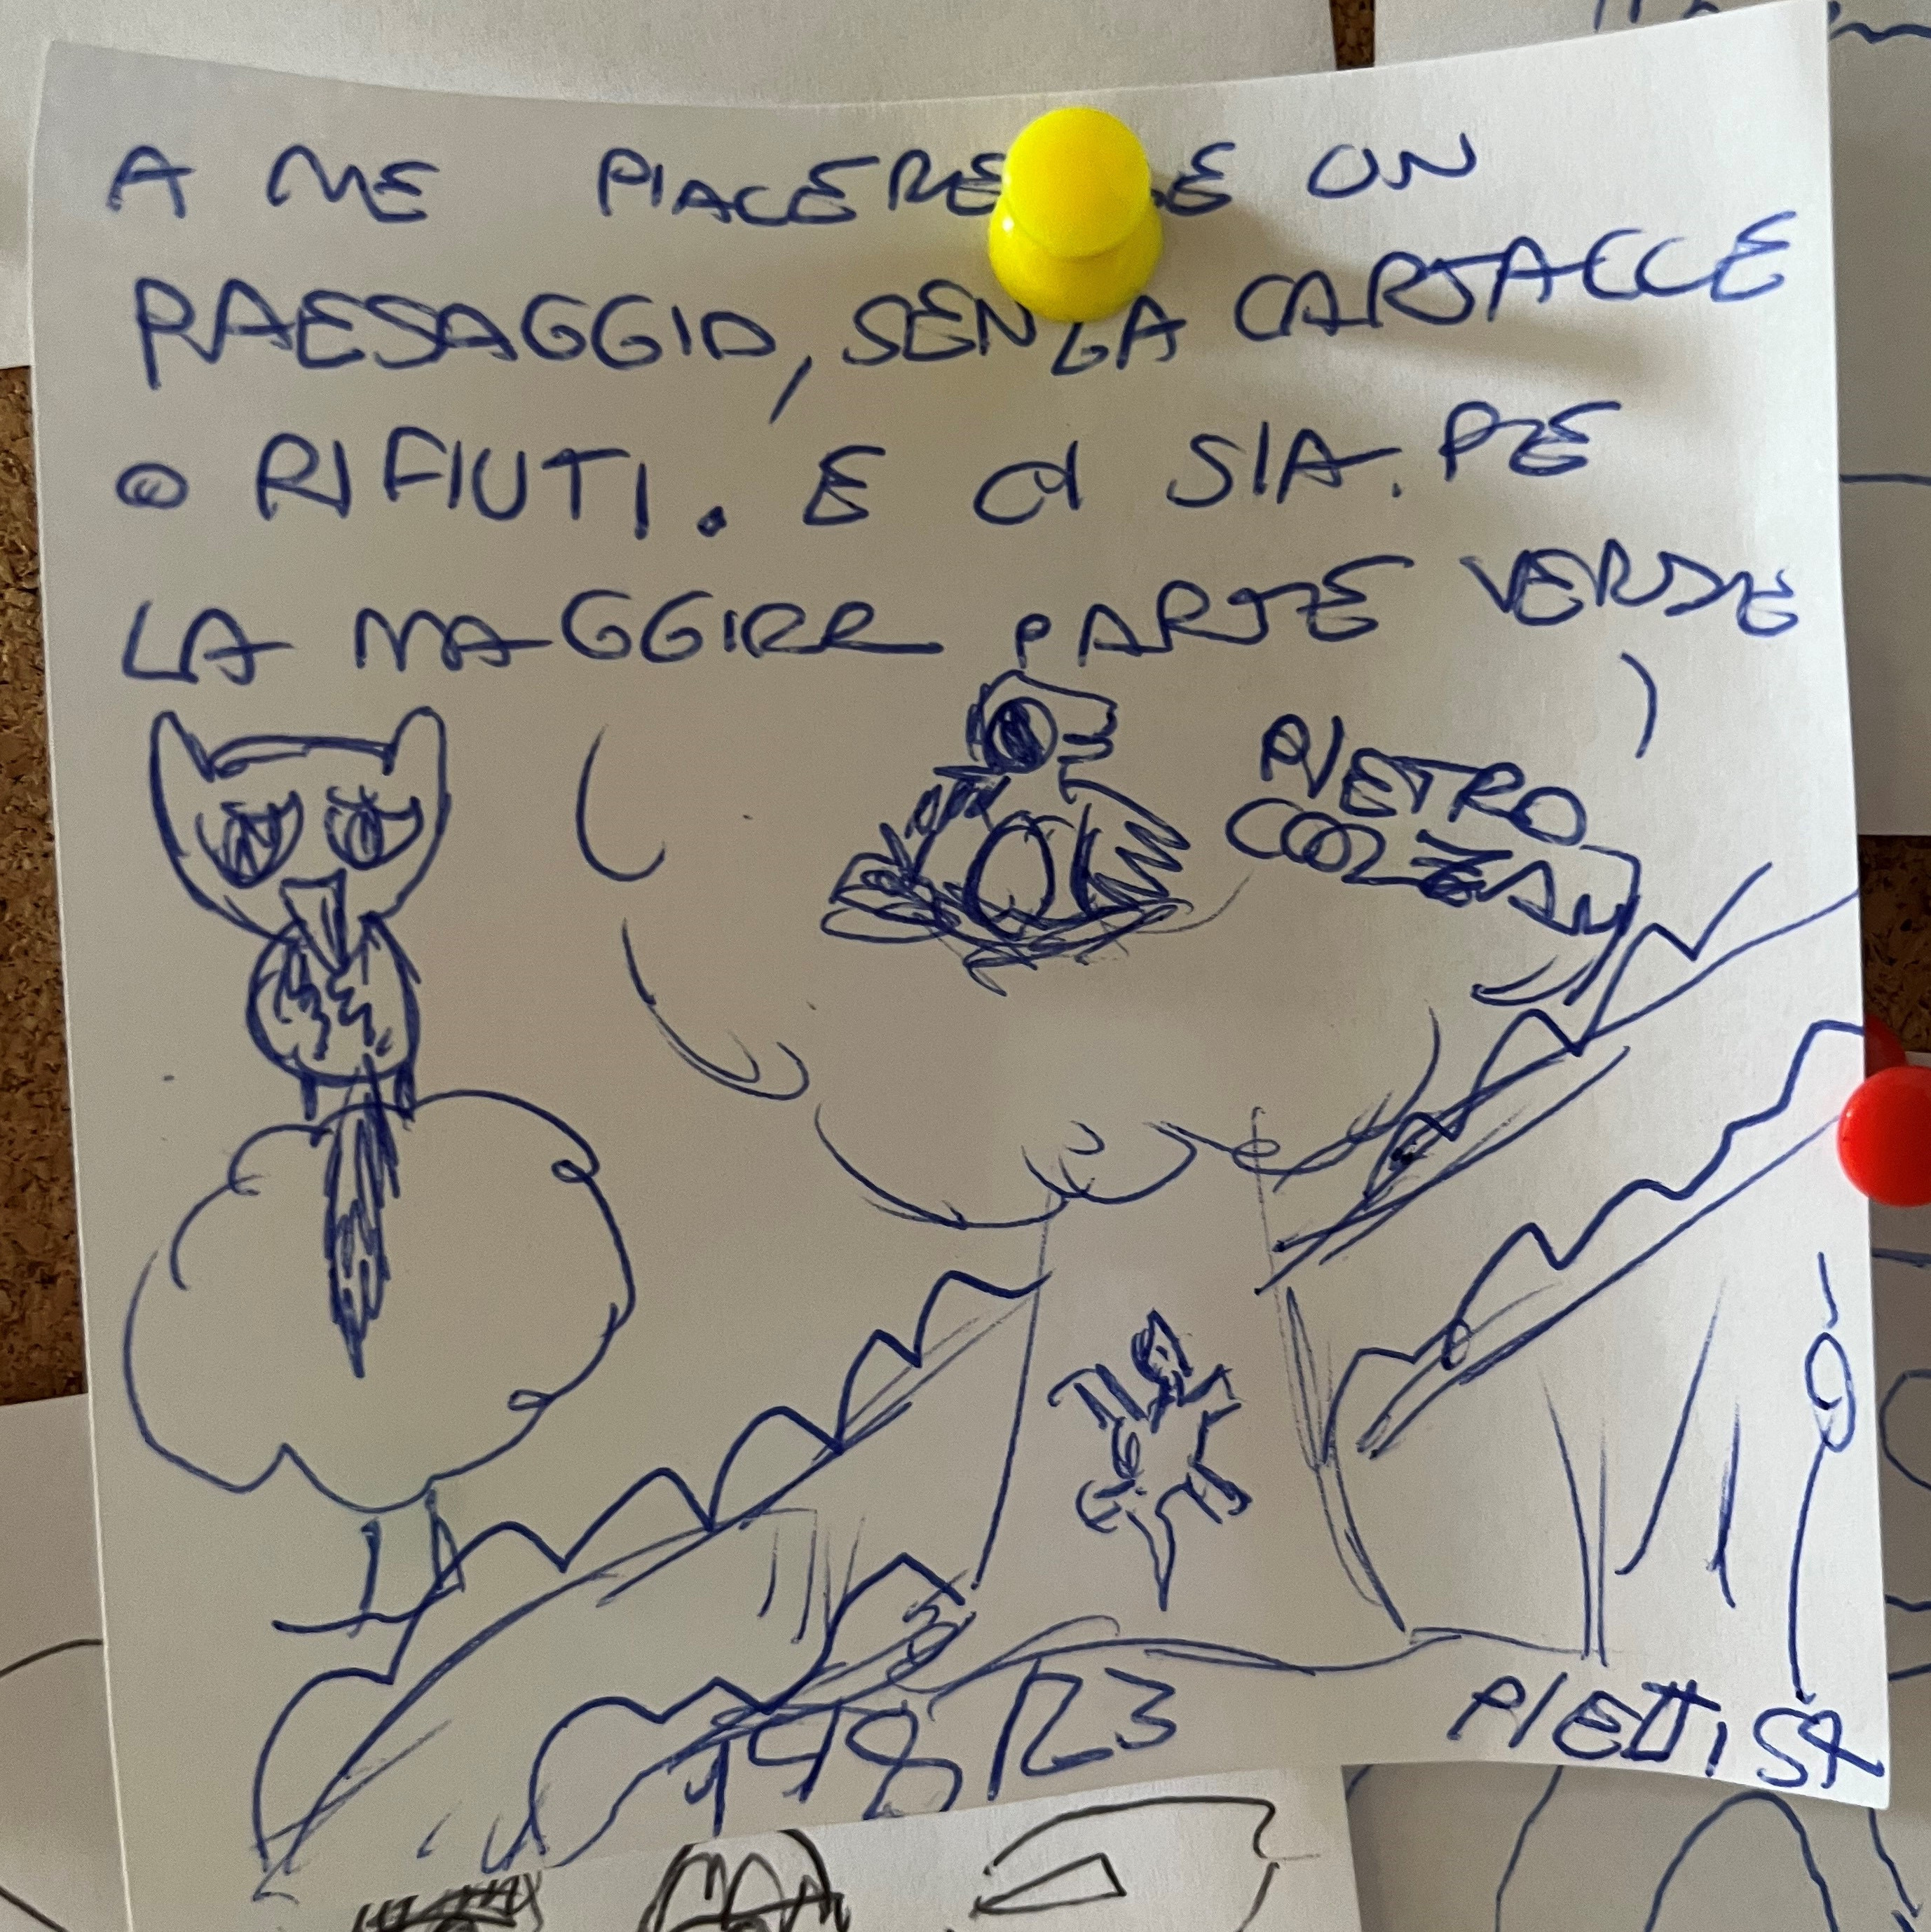 A ME PIACERE E UN
PAESAGGIO, SENZA CARTACCE
O RIFIUTI. E CI SIA. PE
LA MAGGIRR PARTE VERDE
PIETRO